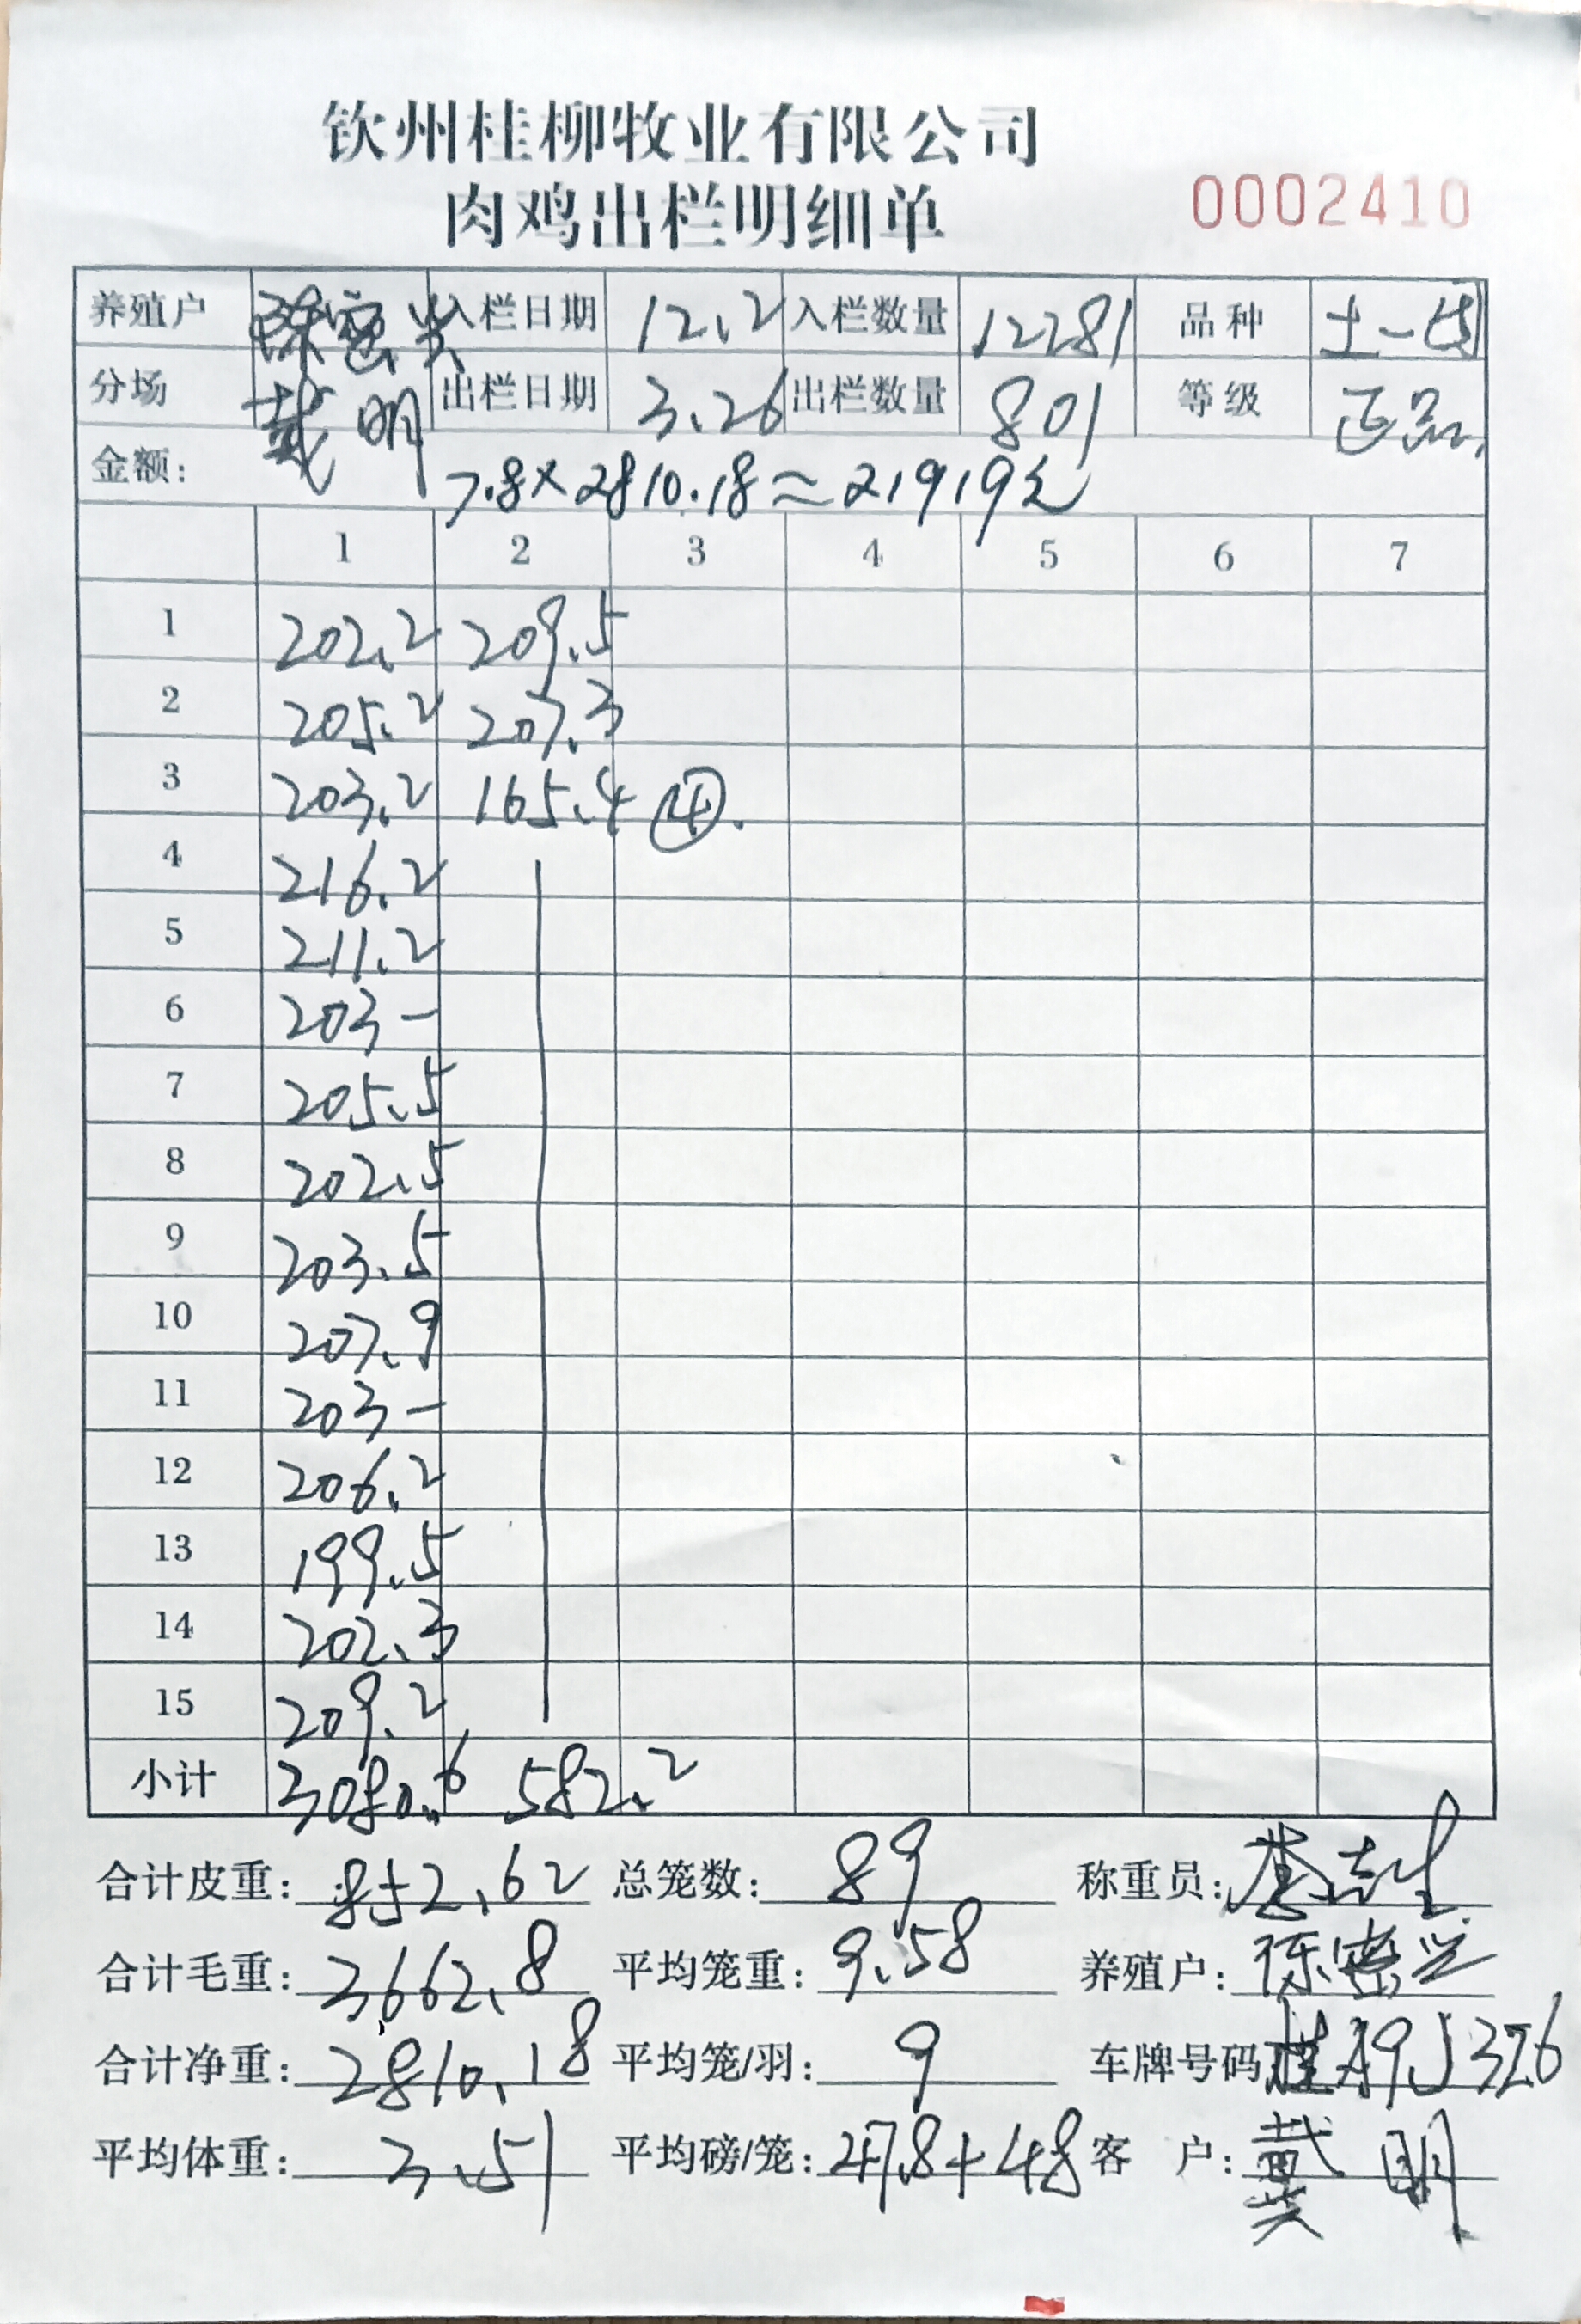 钦州桂柳牧业有限公司
肉鸡出栏明细单 0002410
养殖户 入栏日期 12.2 入栏数量 12281 品种 土一
分场 戴明 出栏日期 3.26 出栏数量 801 等级 正品
金额: 7.8×2810.18≈21919元
1 2 3 4 5 6 7
1 202.2 209.5
2 205.2 207.3
3 203.2 165.4 ④.
4 216.2
5 211.2
6 203-
7 205.5
8 202.5
9 203.5
10 207.9
11 203-
12 206.2
13 199.5
14 202.3
15 209.2
小计 3080.6 582.2
合计皮重: 852.62 总笼数: 89 称重员:
合计毛重: 3662.8 平均笼重: 9.58 养殖户:
合计净重: 2810.18 平均笼/羽: 9 车牌号码 桂A9J326
平均体重: 3.51 平均磅/笼: 47.8+48 客 户: 戴明